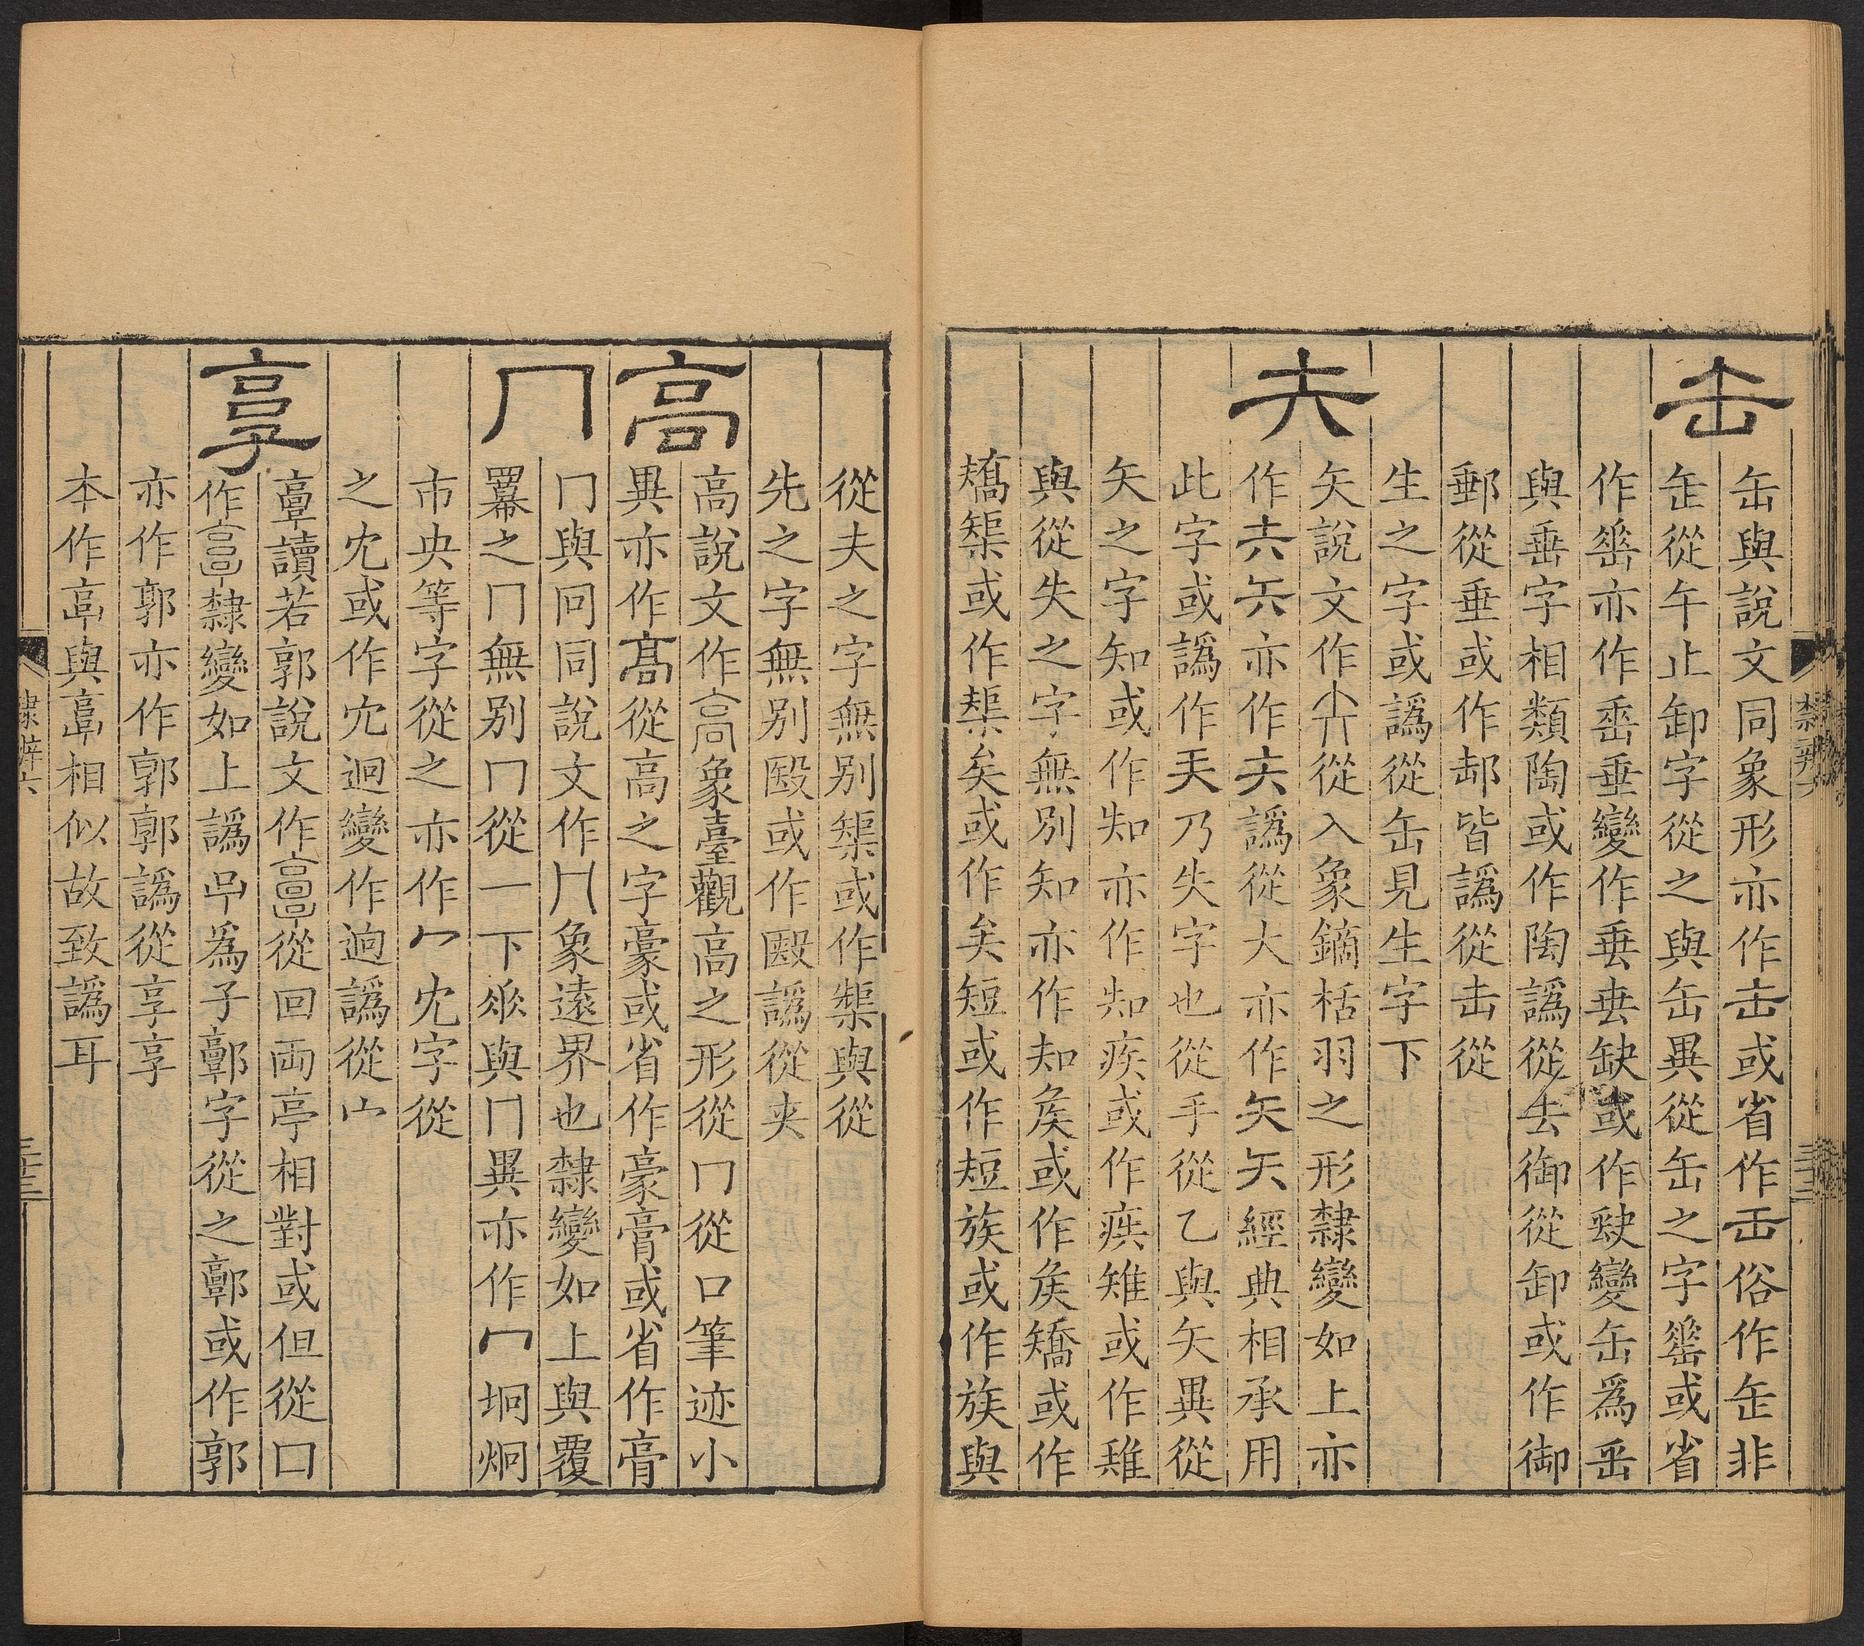 缶
缶與說文同象形亦作𦈢或省作缶俗作缷非
缶從午止卸字從之與缶異從缶之字䍃或省
作䍃亦作垂變作垂缺或作䦼變缶爲垂
與垂字相類陶或作陶譌從去御從卸或作御
郵從垂或作郵皆譌從击從
生之字或譌從缶見生字下
夫
矢說文作𠂕從入象鏑栝羽之形隸變如上亦
作亦作譌從大亦作矢矢經典相承用
此字或譌作乃失字也從手從乙與矢異從
矢之字知或作知亦作知疾或作疾雉或作雉
與從失之字無別知亦作知矦或作矦矯或作
矯榘或作榘矣或作矣短或作短族或作族與
從夫之字無別榘或作榘與從
先之字無別毉或作毉譌從夾
高
高說文作髙象臺觀高之形從冂從口筆迹小
異亦作髙從高之字豪或省作豪膏或省作膏
冂
冂與冋同說文作冂象遠界也隸變如上與覆
冪之冂無別冂從一下𠂢與冂異亦作冖坰炯
市央等字從之亦作冖冘字從
之冘或作冗迥變作逈譌從宀
享
𩫏讀若郭說文作𩫏從回兩亭相對或但從口
作𩫖隸變如上譌𠯑爲子鄣字從之鄣或作郭
亦作郭亦作郭郭譌從享享
本作亯與𩫏相似故致譌耳
隸辨六